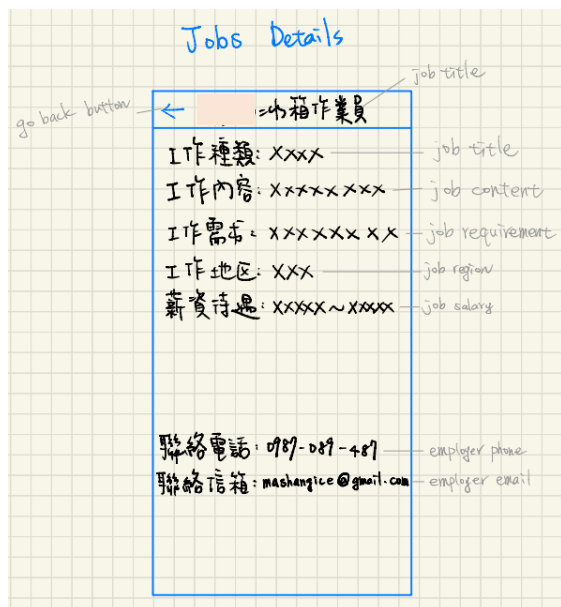 Jobs Details
job title
go back button
← 冰箱作業員
工作種類: xxxx
job title
工作內容: xxxxxxxx
job content
工作需求: xxxxxxxx
job requirement
工作地区: xxx
job region
薪資待遇: xxxxx~xxxxx
job salary
聯絡電話: 0987-089-487
employer phone
聯絡信箱: mashangice@gmail.com
employer email